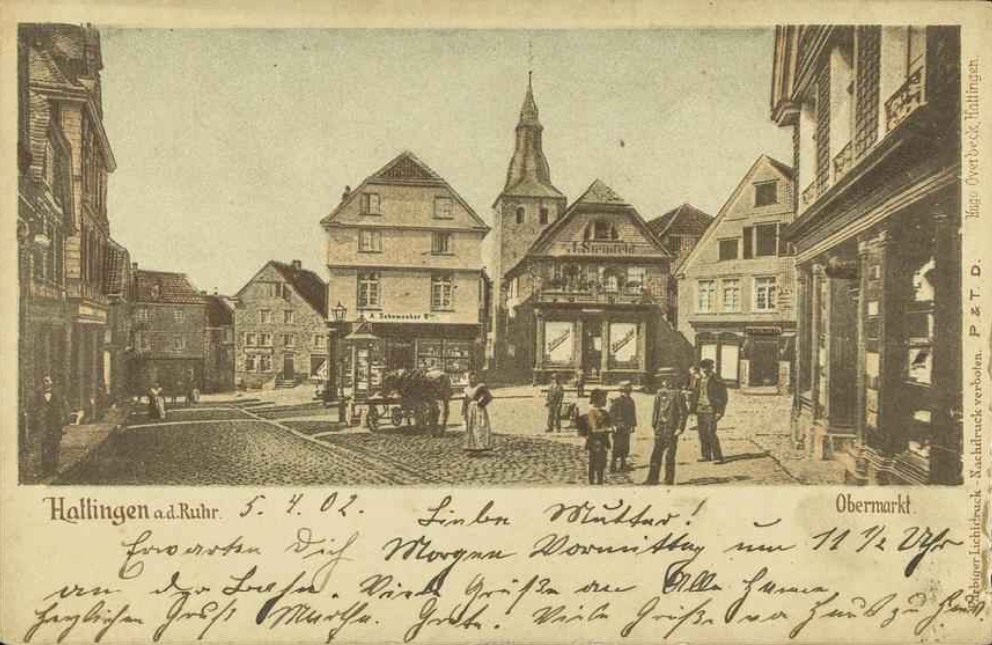 J. Steinfeld
A. Schumacher
Hattingen a.d. Ruhr. 5. 4. 02. Liebe Mutter! Obermarkt.
Erwarten Dich Morgen Vormittag um 11 1/2 Uhr
an der Bahn. Viele Grüße an Alle
Herzlichen Gruß Martha. Grete. Viele Grüße von Haus zu Haus.
Hugo Overbeck, Hattingen.
P & T. D.
farbiger Lichtdruck - Nachdruck verboten.